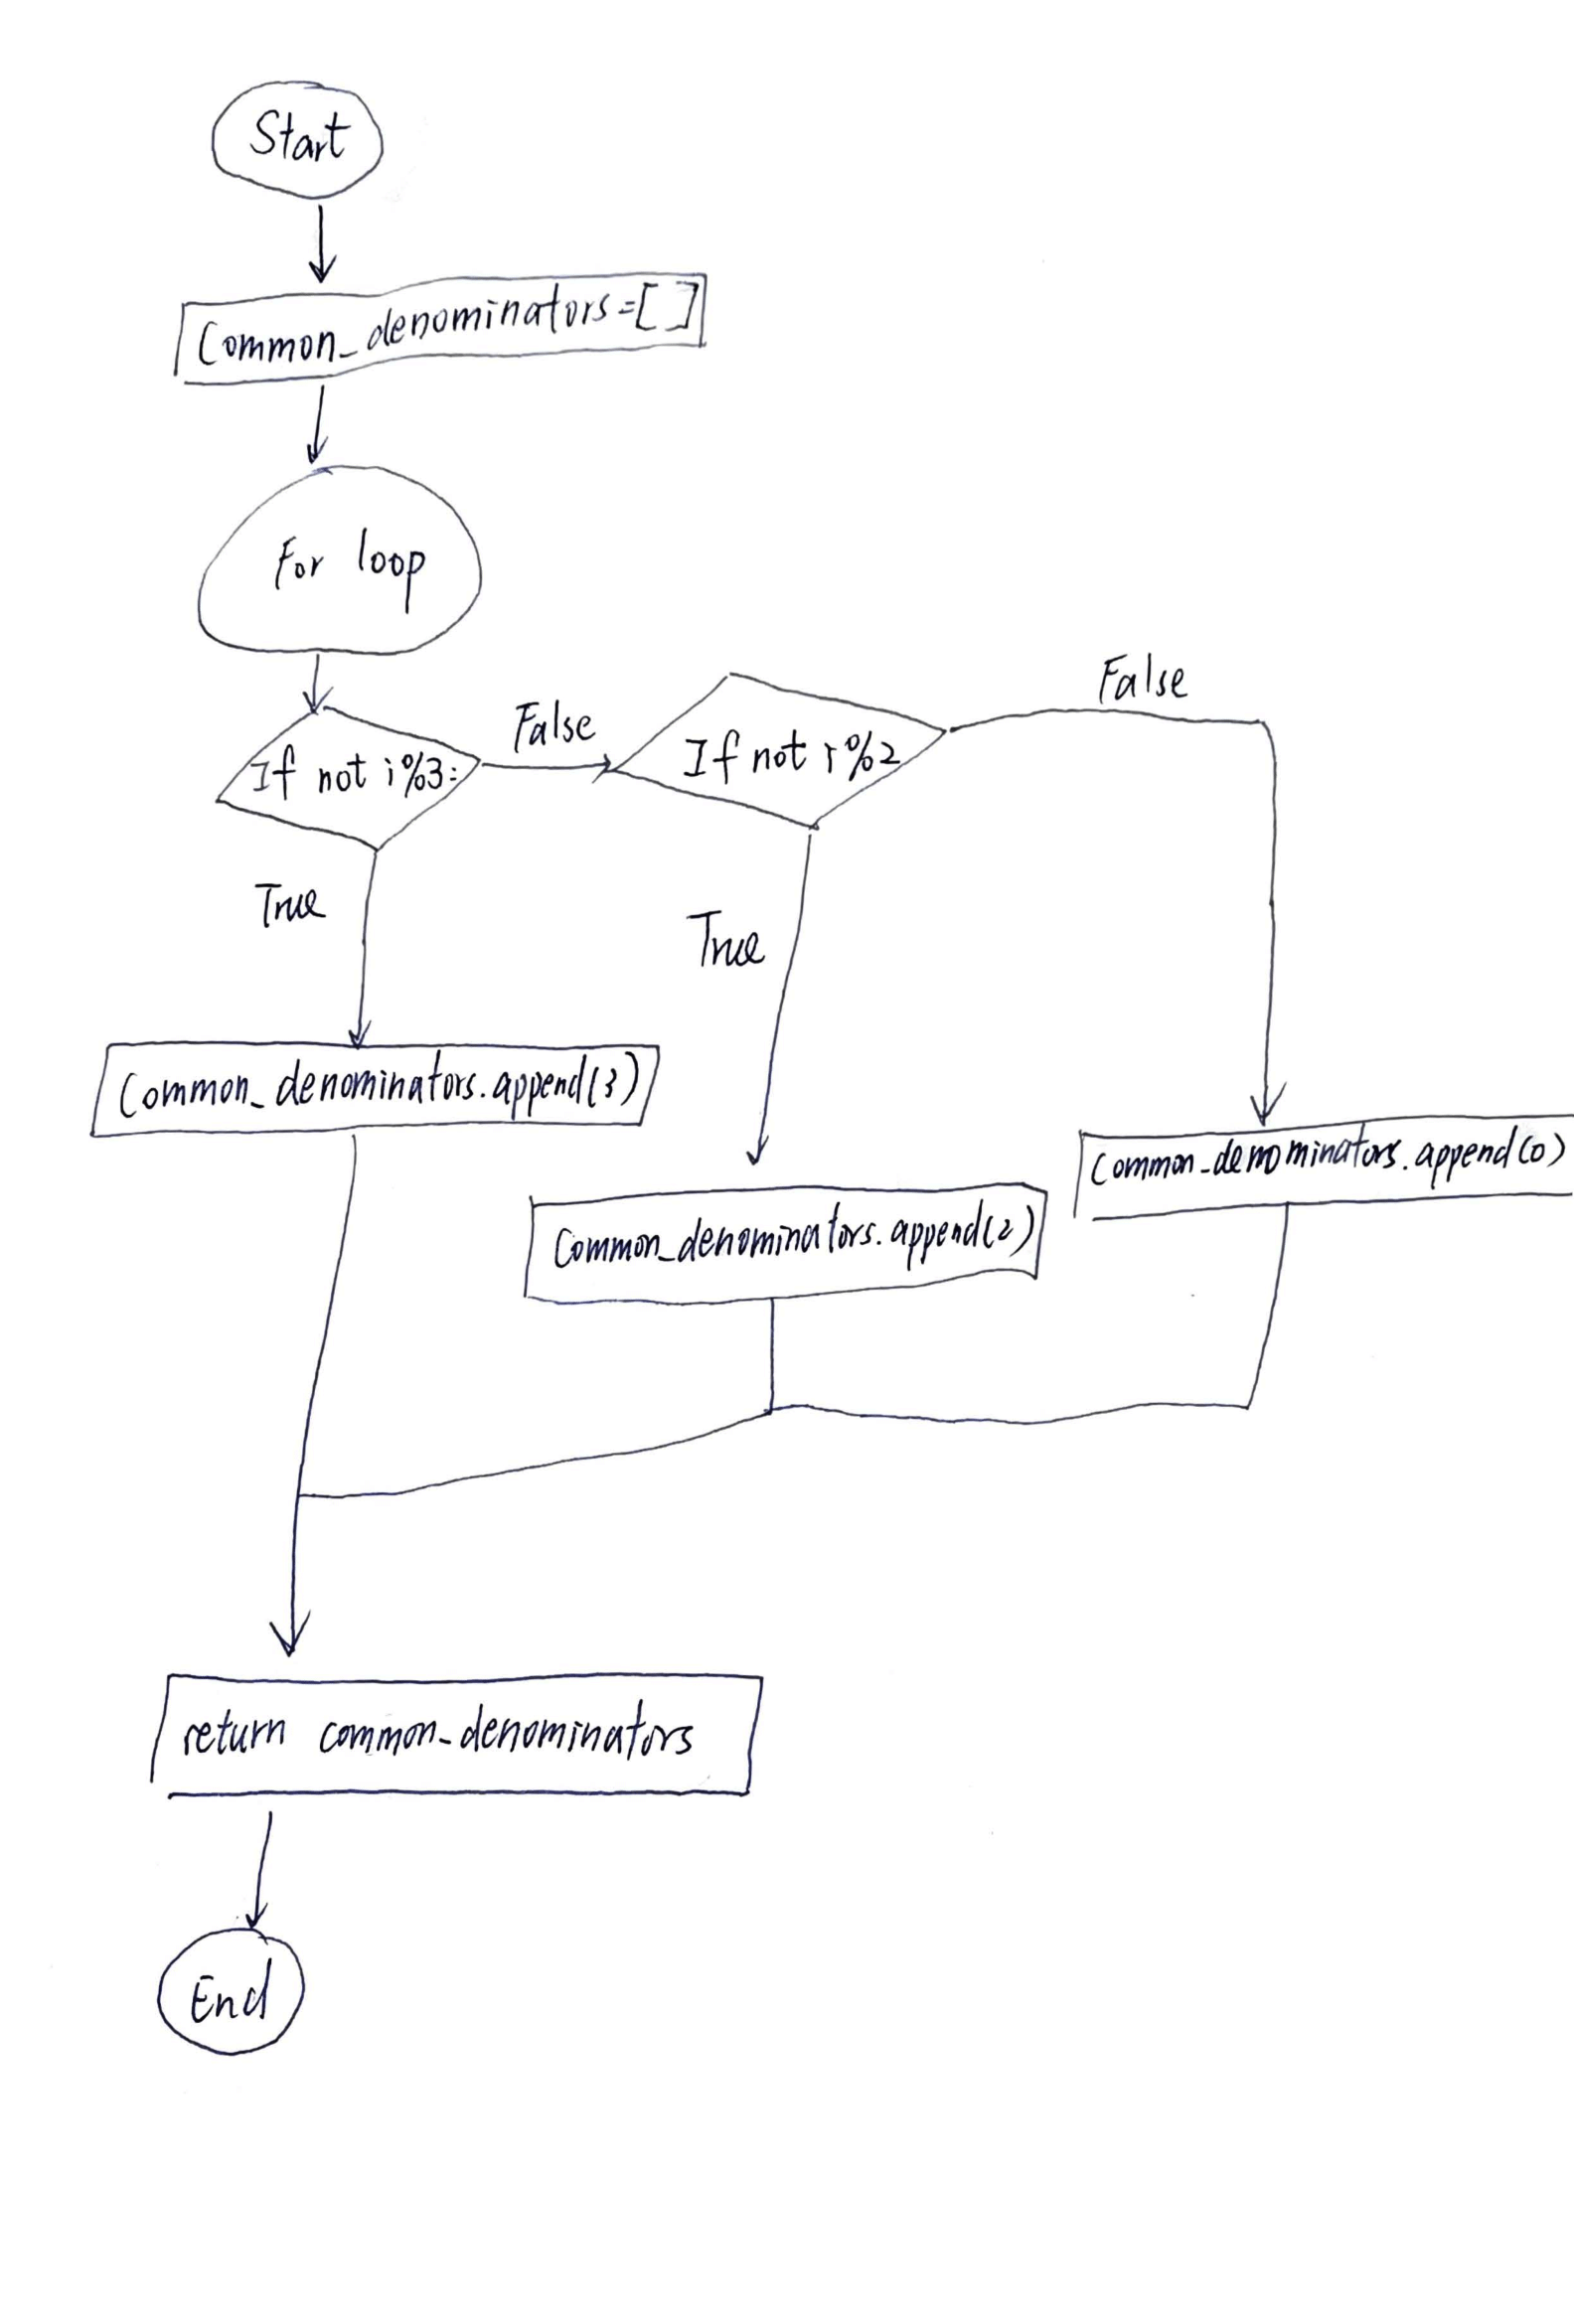 Start
Common_denominators=[ ]
For loop
False
False
If not i%3:
If not i%2
True
True
Common_denominators.append(3)
Common_denominators.append(0)
Common_denominators.append(2)
return common_denominators
End